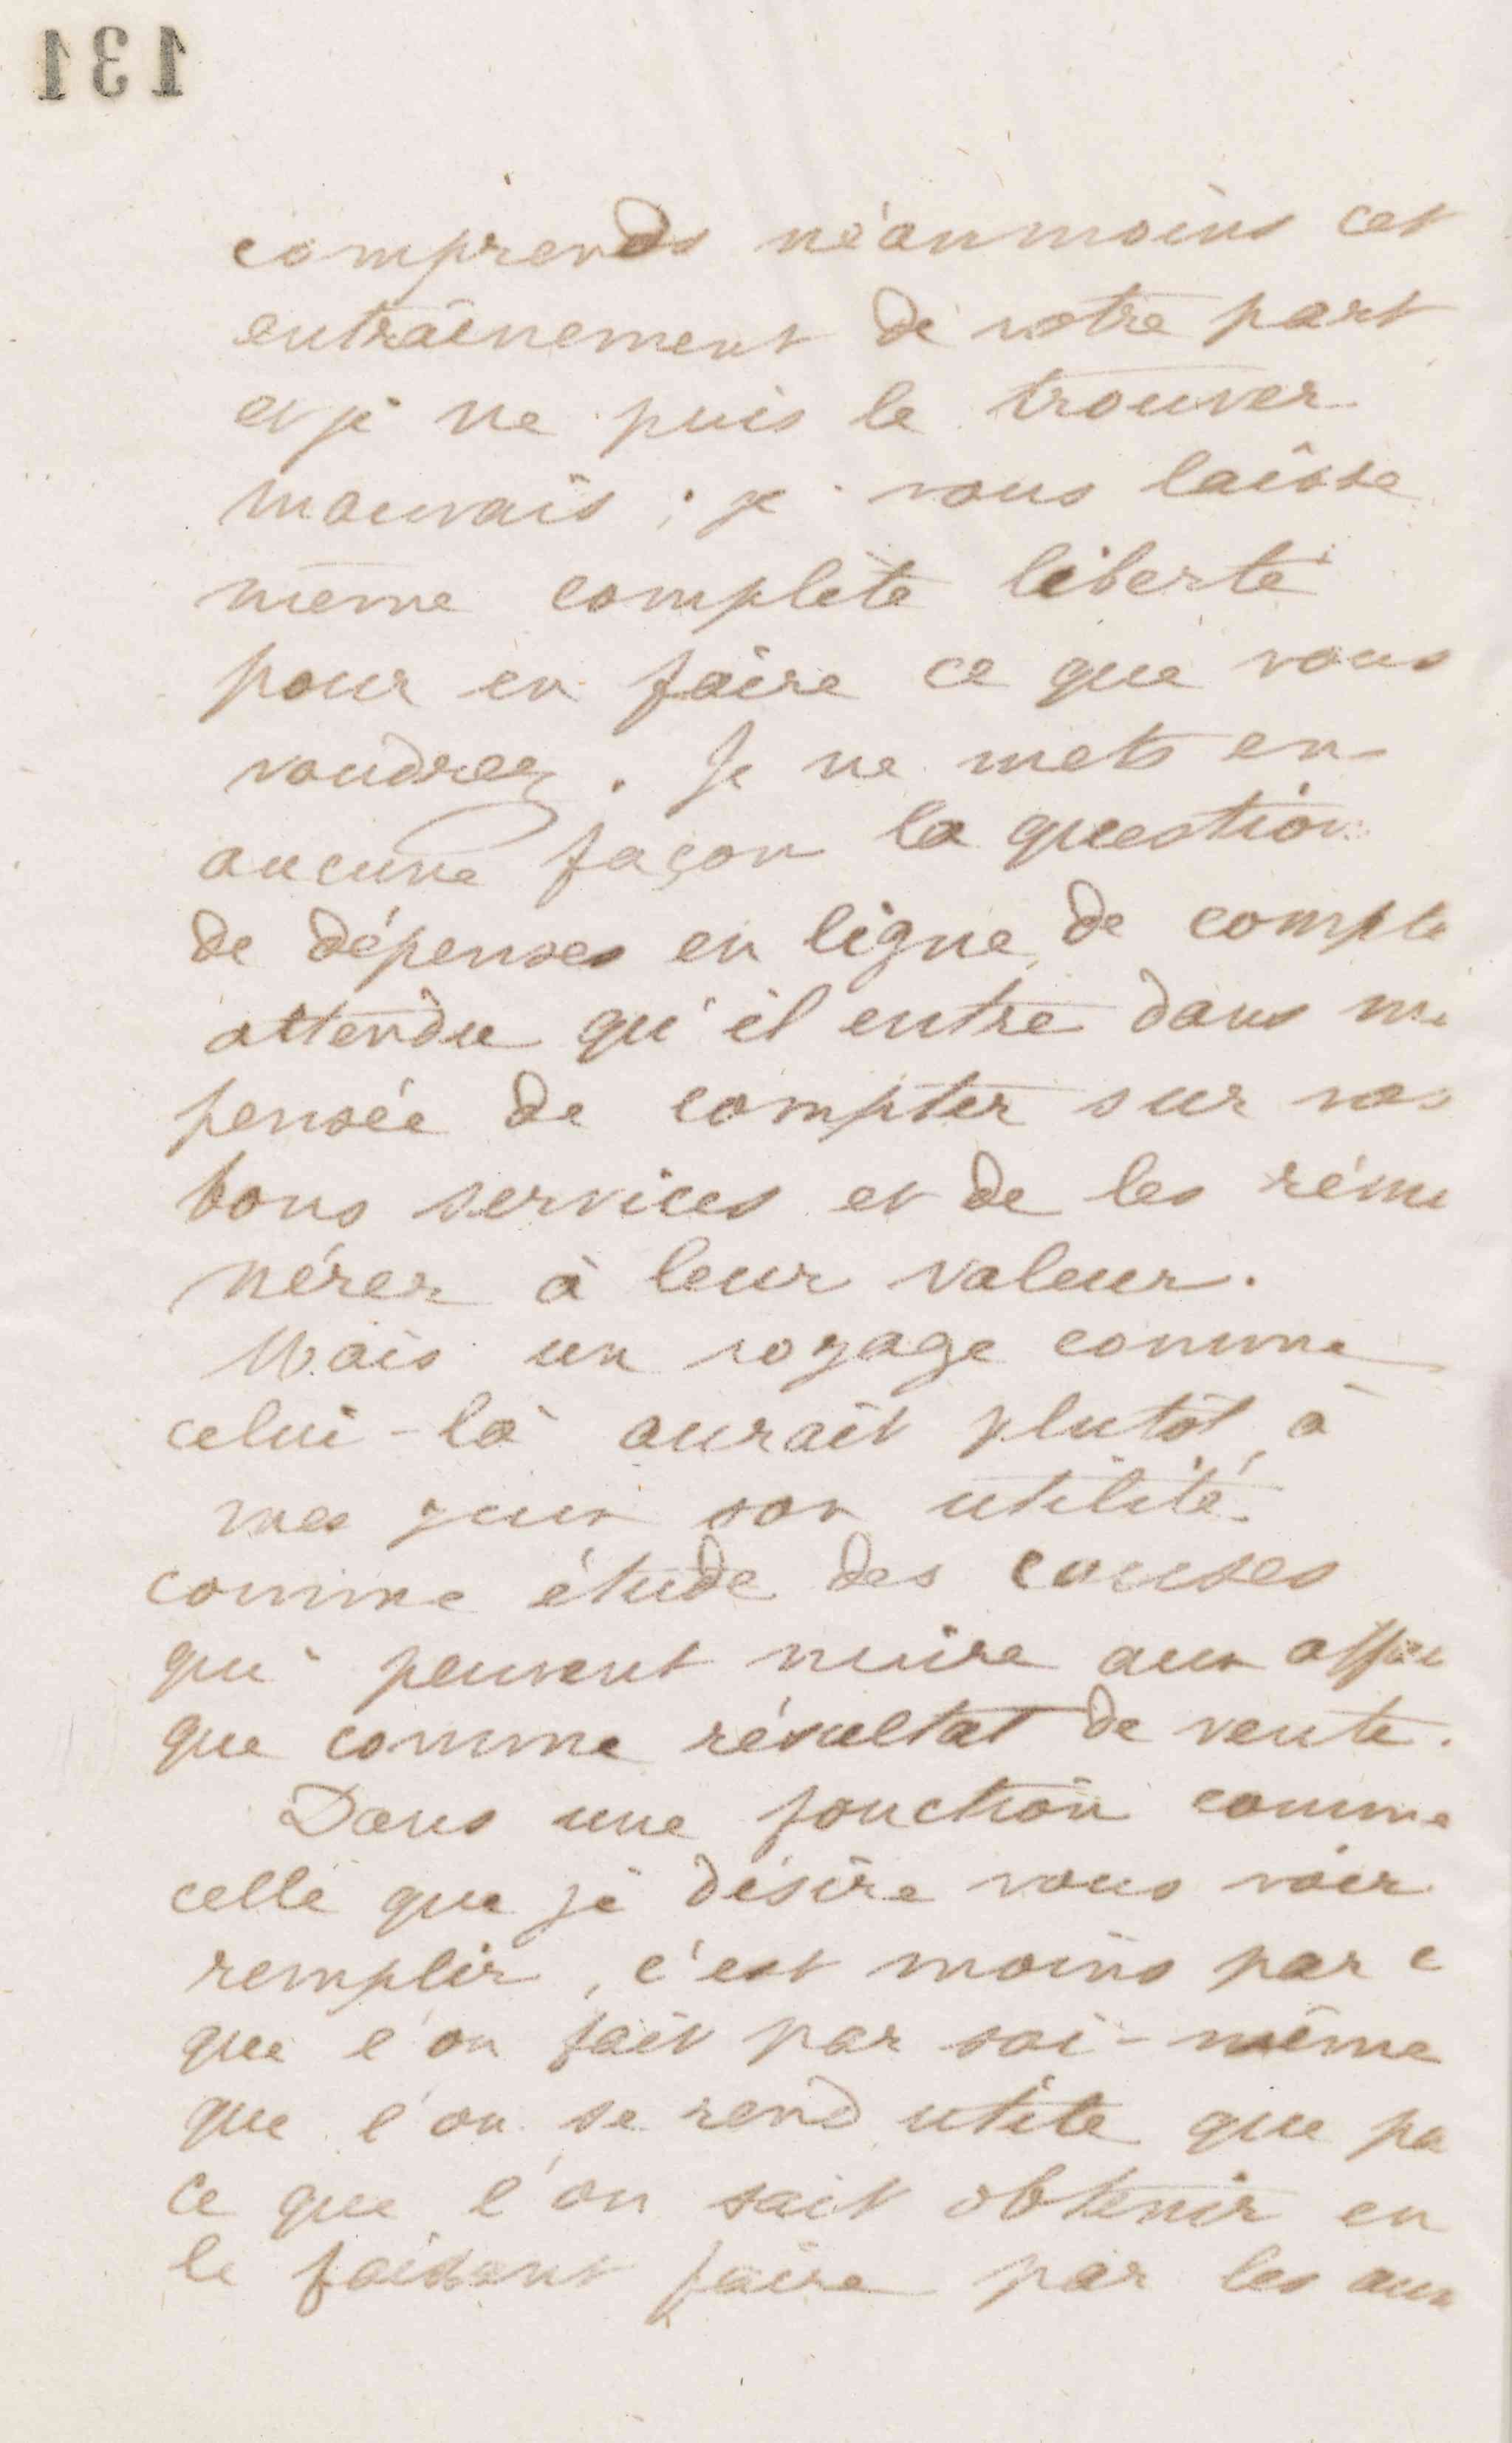 131
comprends néanmoins cet
entraînement de votre part
et je ne puis le trouver
mauvais ; je vous laisse
même complète liberté
pour en faire ce que vous
voudrez. Je ne mets en
aucune façon la question
de dépenses en ligne de compte
attendu qu'il entre dans ma
pensée de compter sur vos
bons services et de les rému
nérer à leur valeur.
Mais un voyage comme
celui-là aurait plutôt à
mes yeux son utilité
comme étude des causes
qui peuvent nuire aux
que comme résultat de vente.
Dans une fonction comme
celle que je désire vous voir
remplir, c'est moins par c
que l'on fait par soi-même
que l'on se rend utile que pa
ce que l'on sait obtenir en
le faisant faire par les au